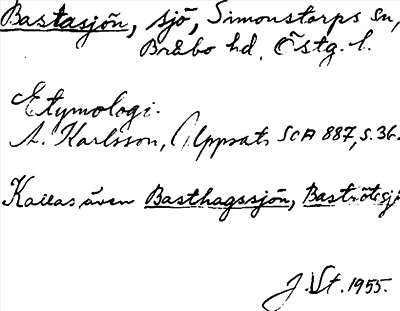 Bastasjön, sjö, Simonstorps sn,
Bråbo hd, Östg. l.
Etymologi.
A. Karlsson, Uppsats SOA 887, s. 36.
Kallas även Basthagssjön, Baströtssj
J. St. 1955.